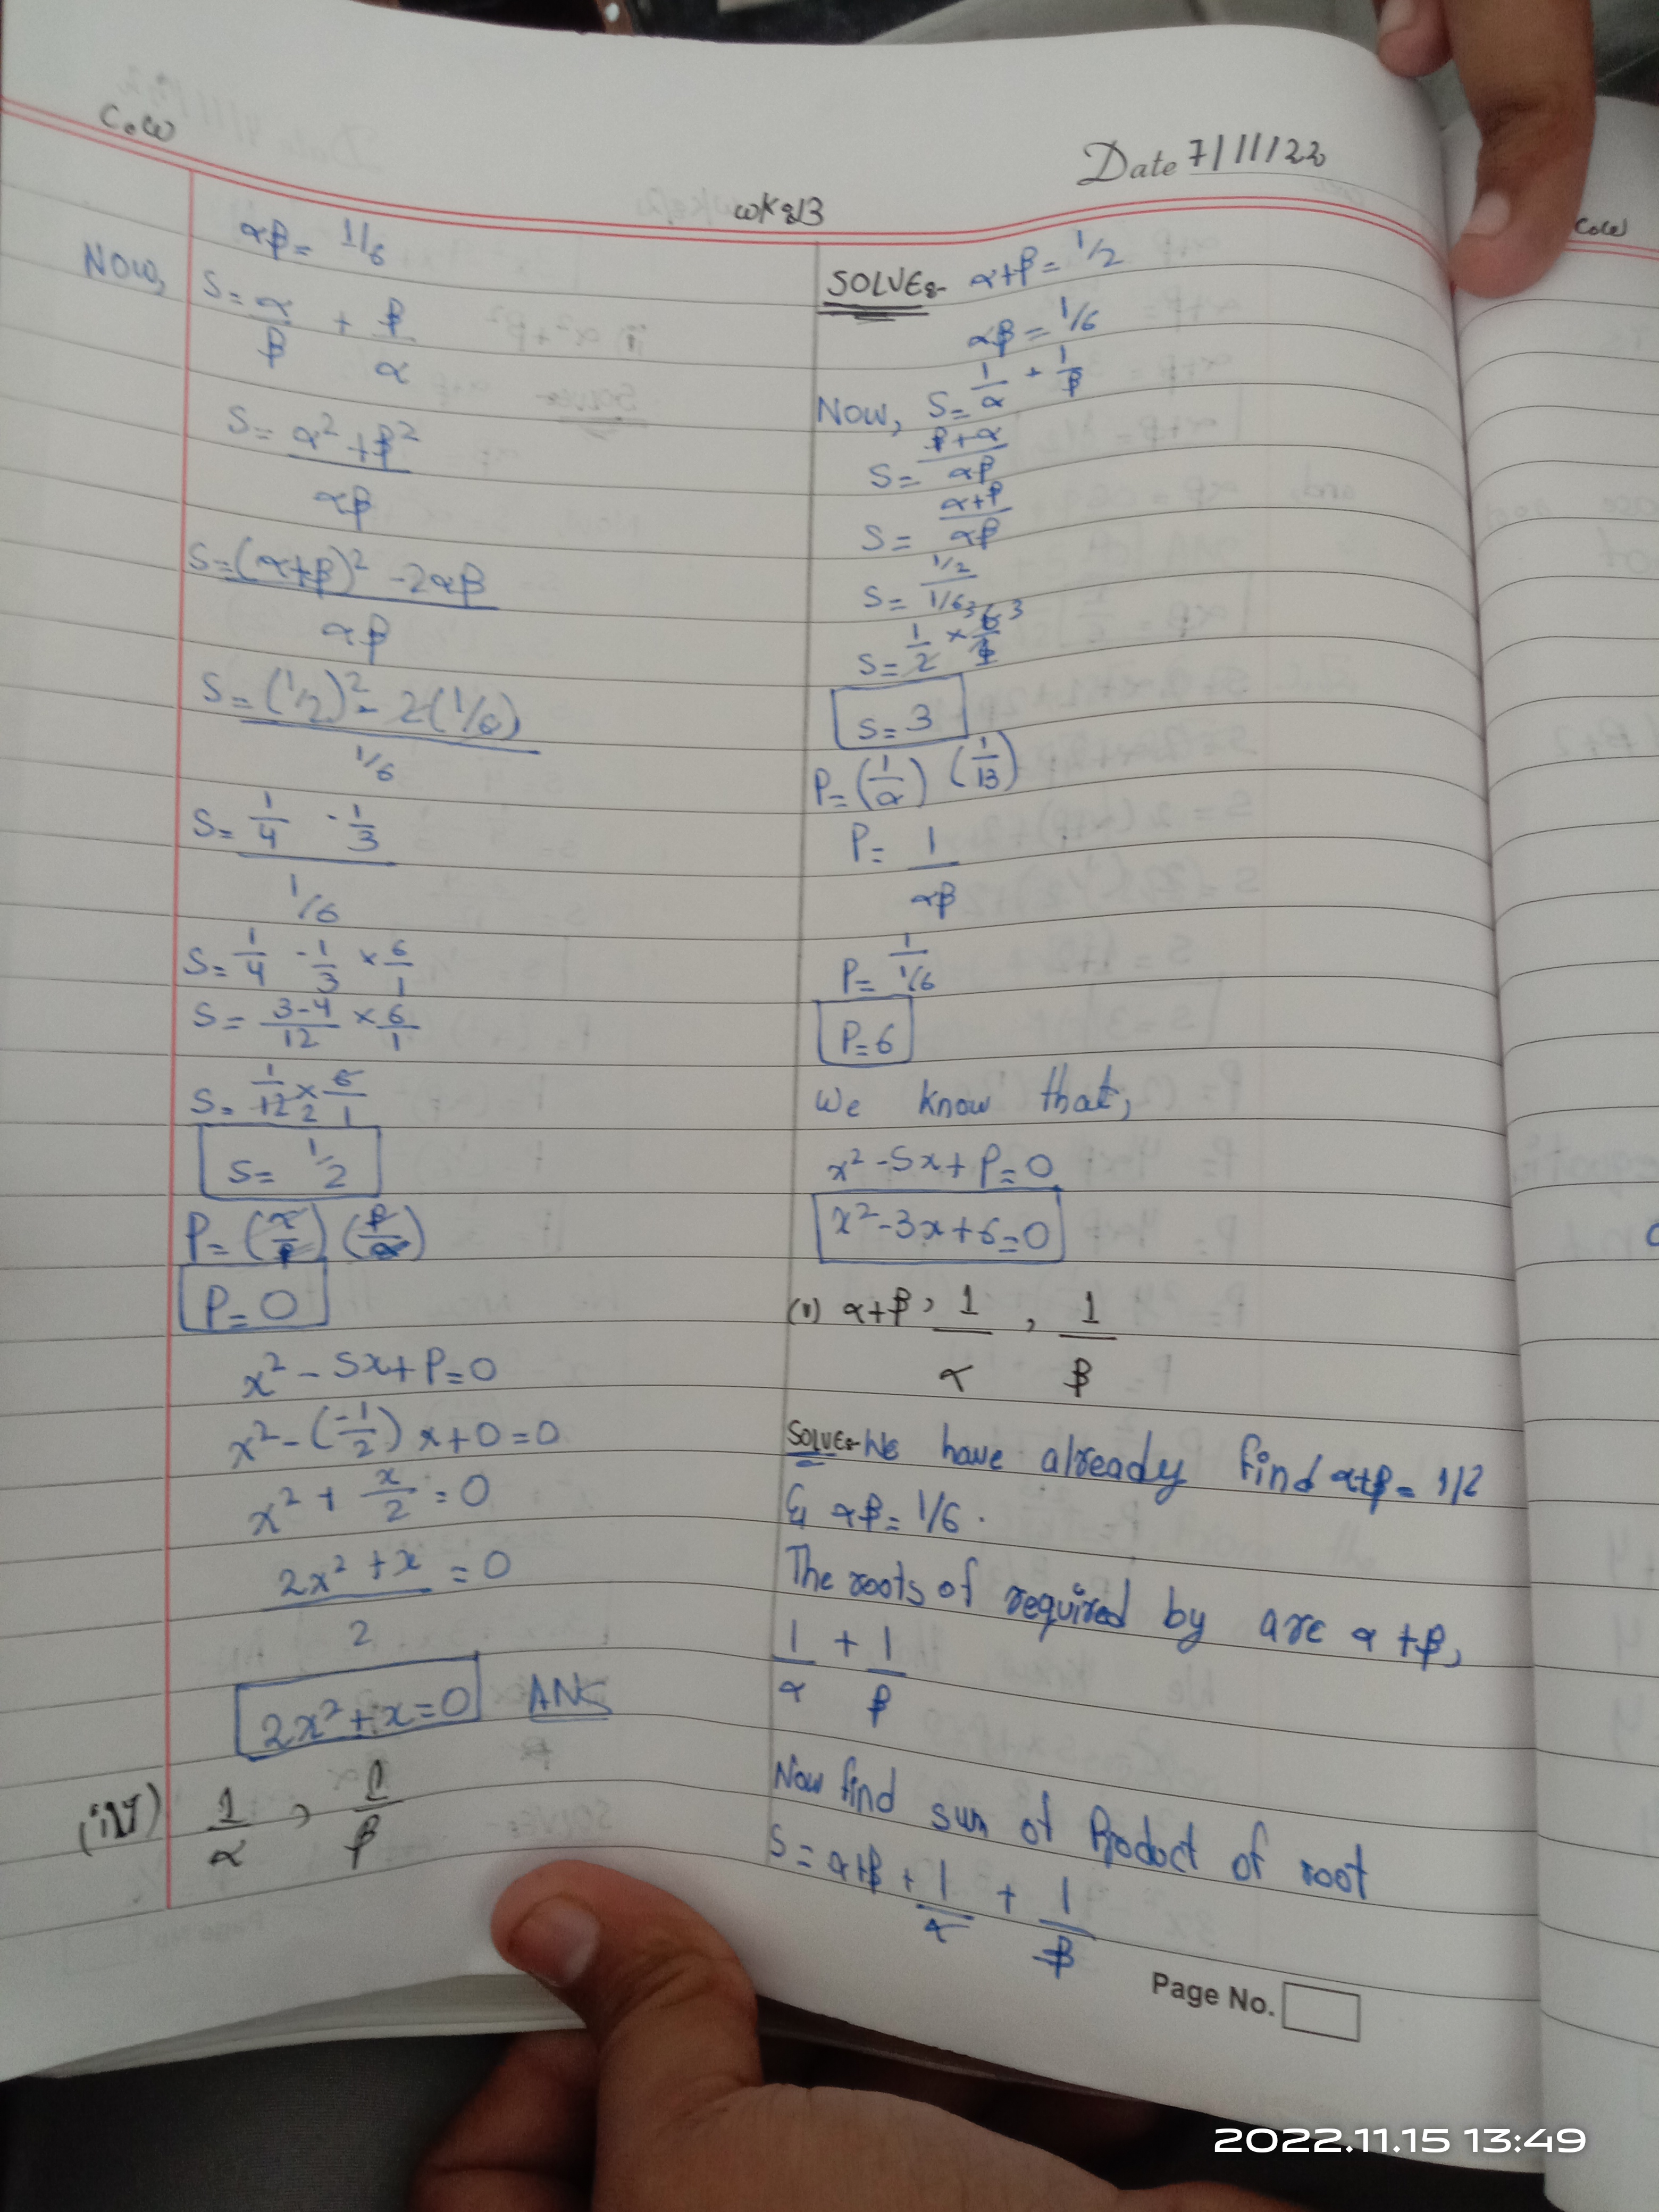 C.W
Date 7/11/22
wk#13
αβ = 1/6
Now, S = α/β + β/α
S = α² + β² / αβ
S = (α+β)² - 2αβ / αβ
S = (1/2)² - 2(1/6) / 1/6
S = 1/4 - 1/3 / 1/6
S = 1/4 - 1/3 × 6/1
S = 3-4/12 × 6/1
S = 1/12 2 × 6/1
S = 1/2
P = (α/β) (β/α)
P = 0
x² - Sx + P = 0
x² - (-1/2) x + 0 = 0
x² + x/2 = 0
2x² + x / 2 = 0
2x² + x = 0 ANS
(iv) 1/α , 1/β
SOLVE:- α+β = 1/2
αβ = 1/6
Now, S = 1/α + 1/β
S = β+α / αβ
S = α+β / αβ
S = 1/2 / 1/6
S = 1/2 × 6/1 3
S = 3
P = (1/α) (1/13)
P = 1/αβ
P = 1 / 1/6
P = 6
We know that,
x² - Sx + P = 0
x² - 3x + 6 = 0
(v) α+β , 1/α , 1/β
SOLVE:- We have already find α+β = 1/2
& αβ = 1/6 .
The roots of required by are α+β,
1/α + 1/β
Now find sum of Product of root
S = α+β + 1/α + 1/β
Page No.
Cow
2022.11.15 13:49